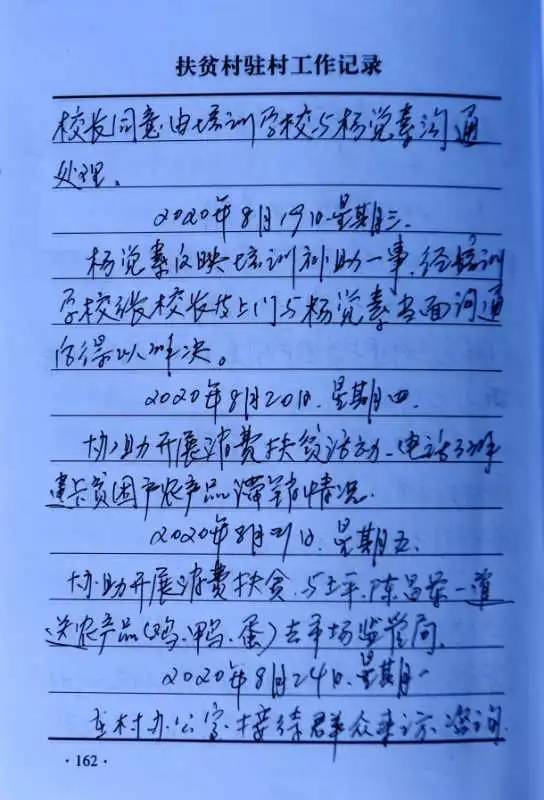 扶贫村驻村工作记录
校长同意由培训学校与杨党素沟通
处理。
2020年8月19日.星期三.
杨党素反映培训补助一事,经培训
学校张校长上门与杨党素当面沟通
后得以解决。
2020年8月20日.星期四.
协助开展消费扶贫活动、电话了解
建卡贫困户农产品滞销情况.
2020年8月21日.星期五.
协助开展消费扶贫.与王平.陈昌荣一道
送农产品(鸡、鸭、蛋)去市场监管局.
2020年8月24日.星期一
在村办公室接待群众来访、咨询.
·162·